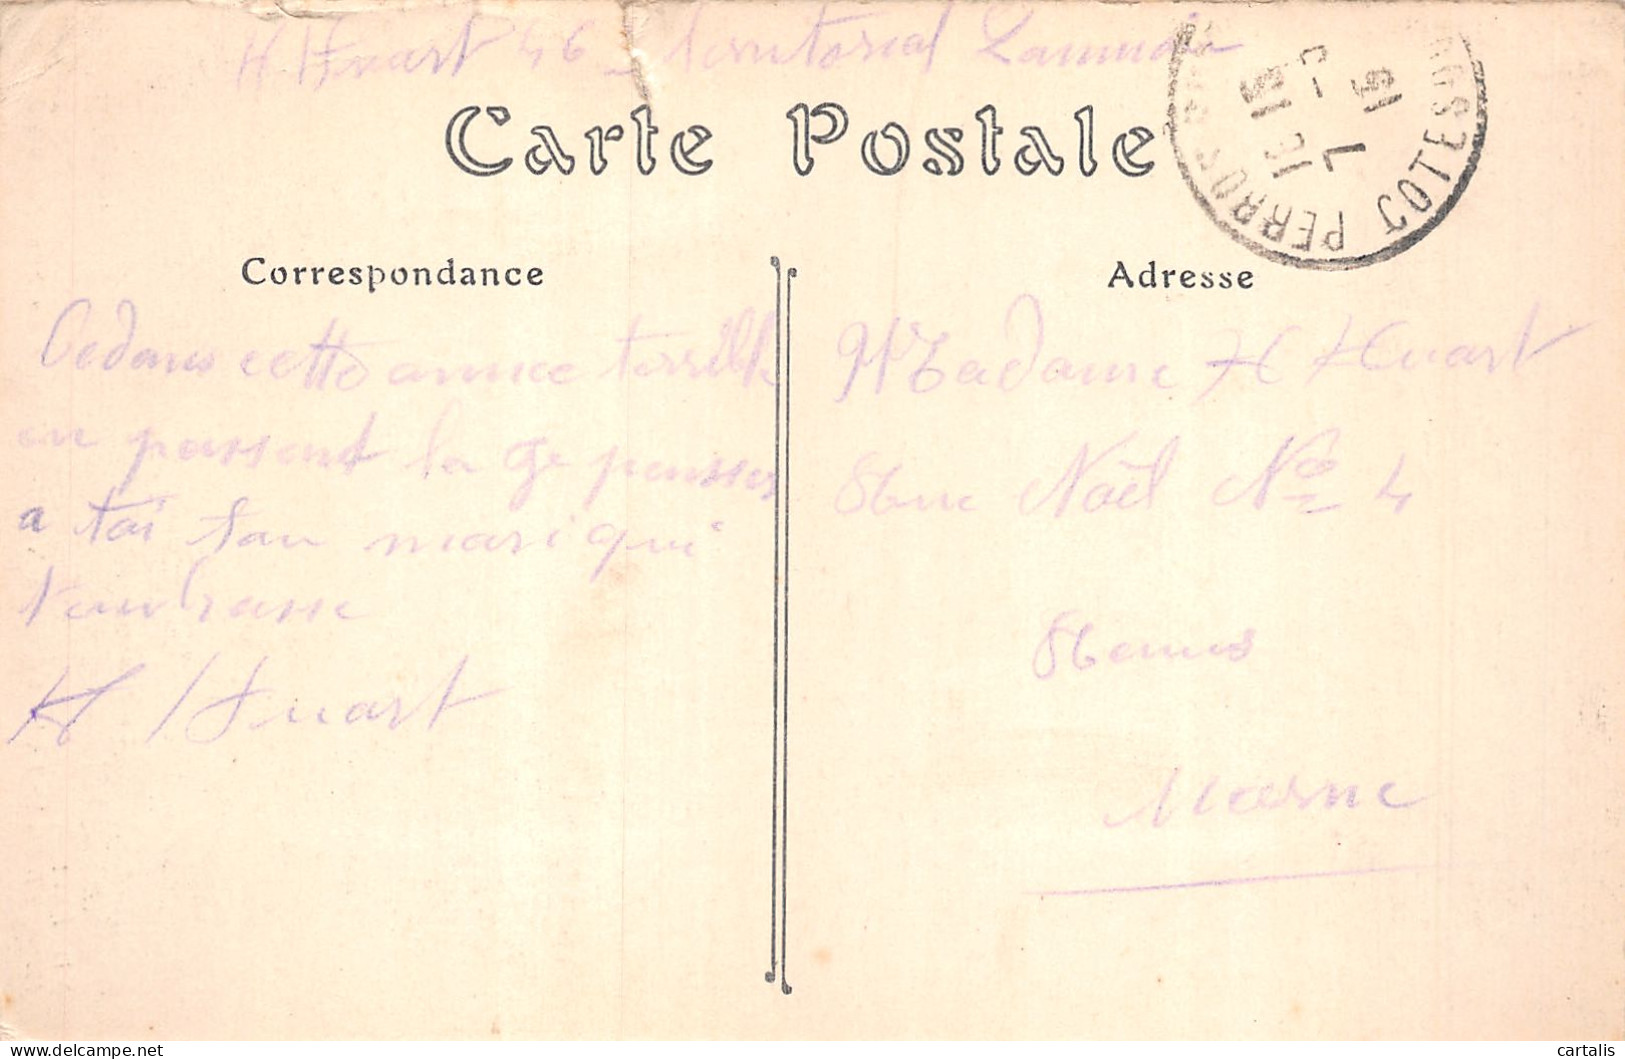 H Huart 46 territorial Lannion
Carte Postale
PERROS COTES
13 15
7 - 7
15
Correspondance
Adresse
cette annee terrible
en passent la ge pensser
a toi ton mari qui
t'embrasse
H Huart
Madame H Huart
Rue Noël No 4
Reims
Marne
cartalis
delcampe.net